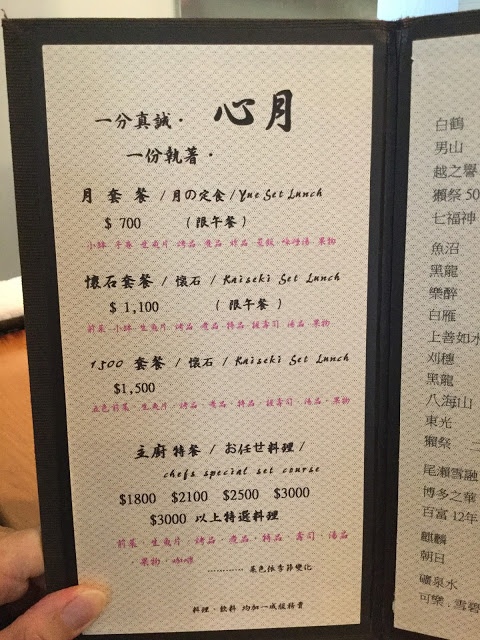 一分真誠· 心月
一份執著·
月 套 餐 / 月の定食 / Yue Set Lunch
$ 700 ( 限午餐 )
小缽 手卷 生魚片 烤品 煮品 炸品 蒸飯 味噌湯 果物
懷石套餐 / 懷石 / Kaiseki Set Lunch
$ 1,100 ( 限午餐 )
前菜 小缽 生魚片 烤品 煮品 特品 握壽司 湯品 果物
1500 套餐 / 懷石 / Kaiseki Set Lunch
$1,500
五色前菜·生魚片·烤品·煮品·特品·握壽司·湯品·果物
主廚特餐 / お任せ料理 /
chefs special set course
$1800 $2100 $2500 $3000
$3000 以上特選料理
前菜·生魚片·烤品·煮品·特品·壽司·湯品
·果物·咖啡
………… 菜色依季節變化
料理·飲料 均加一成服務費
白鶴
男山
越之譽
獺祭 50
七福神
魚沼
黑龍
樂醉
白雁
上善如水
刈穗
黑龍
八海山
東光
獺祭 二
尾瀨雪融
博多之華
百富 12年
麒麟
朝日
礦泉水
可樂；雪碧